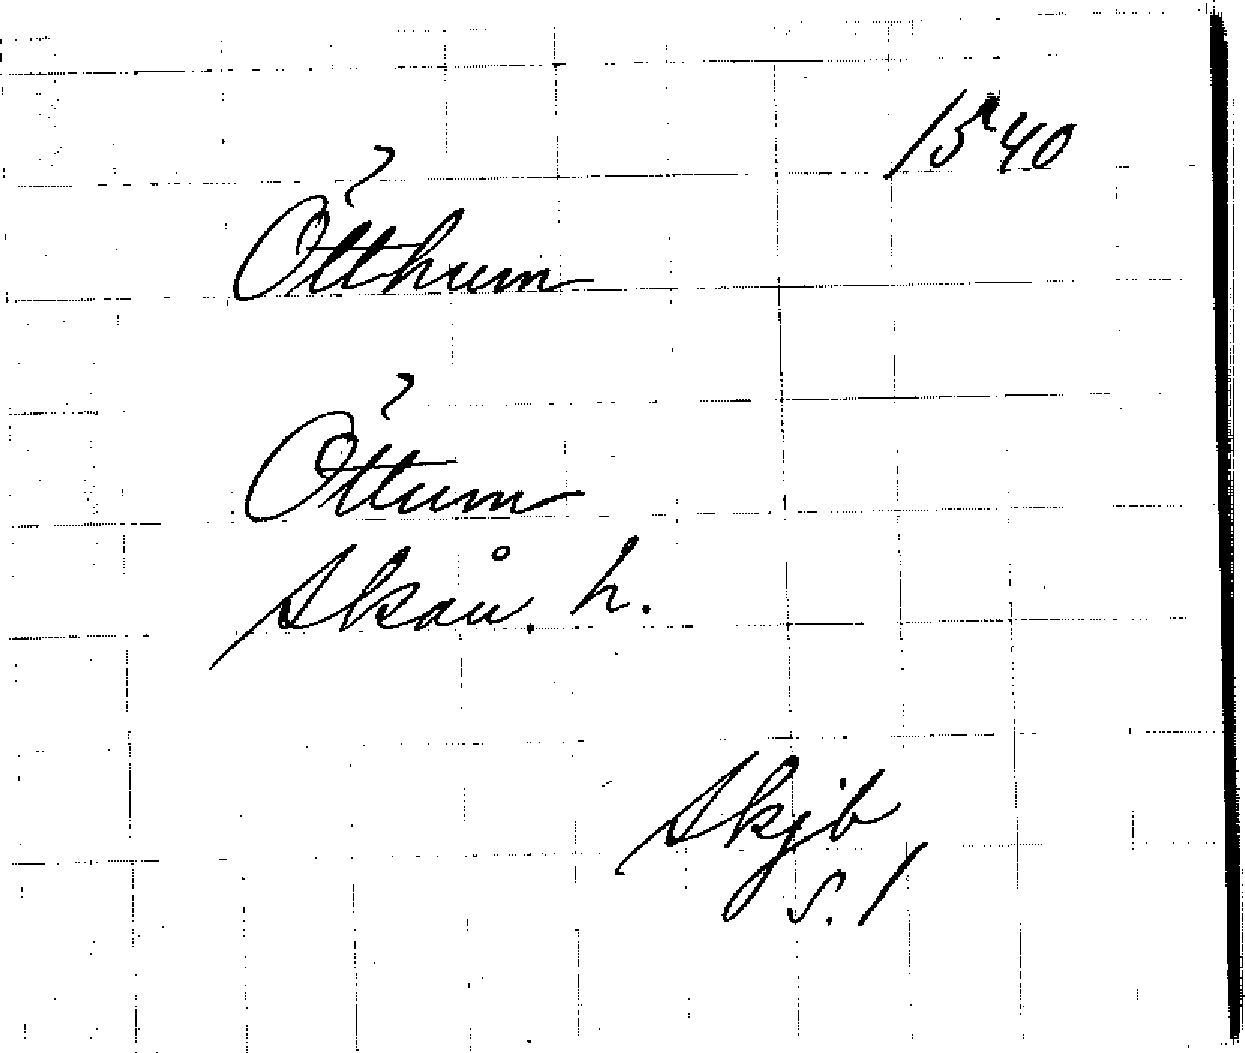 1540
Ötthum
Öttum
Skån. h.
Skjb
s. 1